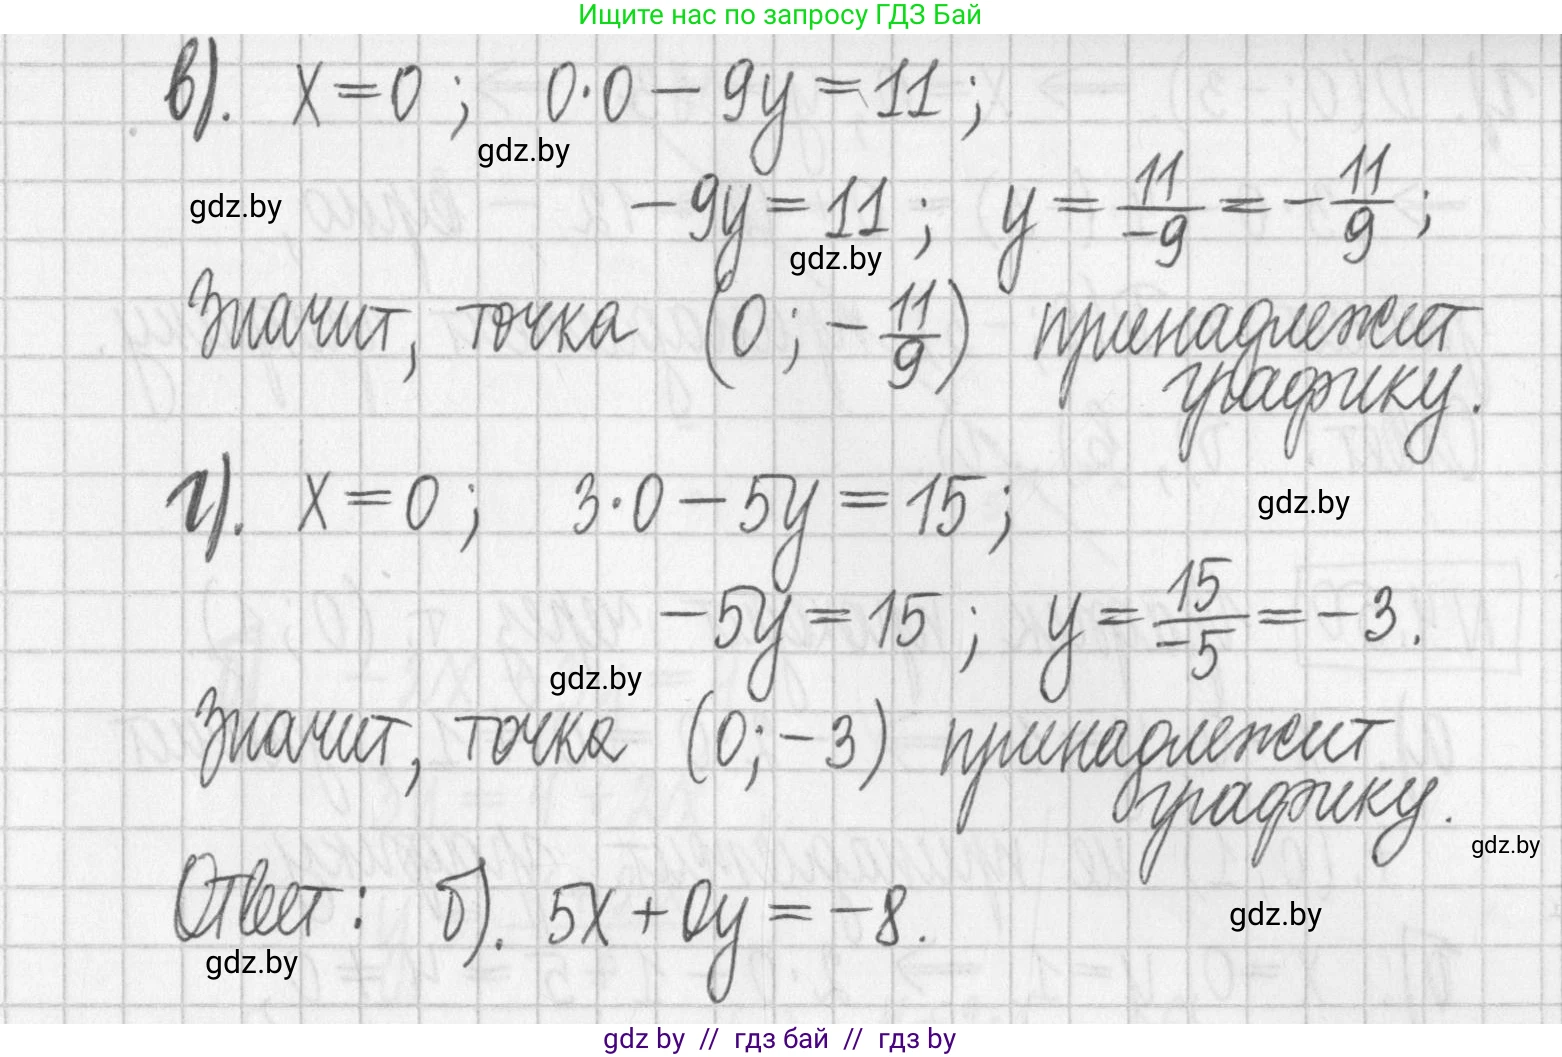 Ищите нас по запросу ГДЗ Бай
в). x=0; 0·0-9y=11;
gdz.by
gdz.by
-9y=11; y=11/-9=-11/9;
gdz.by
Значит, точка (0;-11/9) принадлежит
графику.
г). x=0; 3·0-5y=15;
gdz.by
-5y=15; y=15/-5=-3.
gdz.by
Значит, точка (0;-3) принадлежит
графику.
gdz.by
Ответ: б). 5x+0y=-8.
gdz.by
gdz.by
gdz by // гдз бай // гдз by